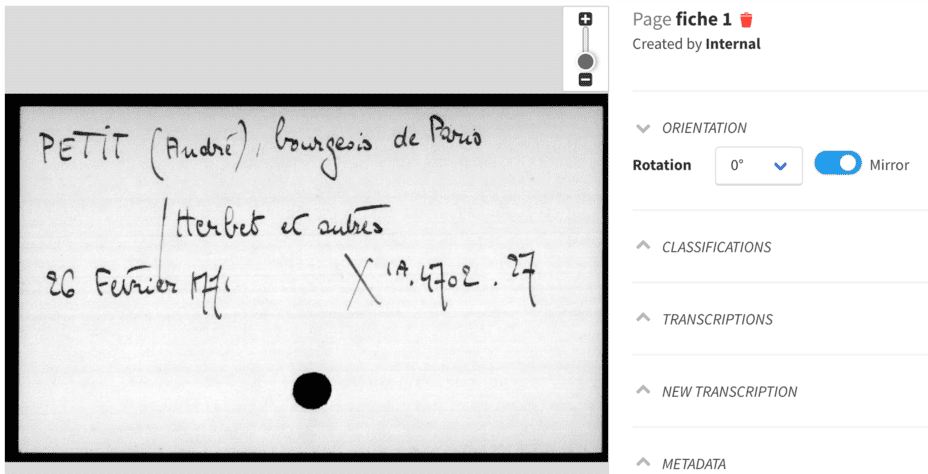 Page fiche 1
Created by Internal
ORIENTATION
Rotation 0° Mirror
CLASSIFICATIONS
TRANSCRIPTIONS
NEW TRANSCRIPTION
METADATA
PETIT (André), bourgeois de Paris
Herbet et autres
26 Février X 1A. 4702. 27